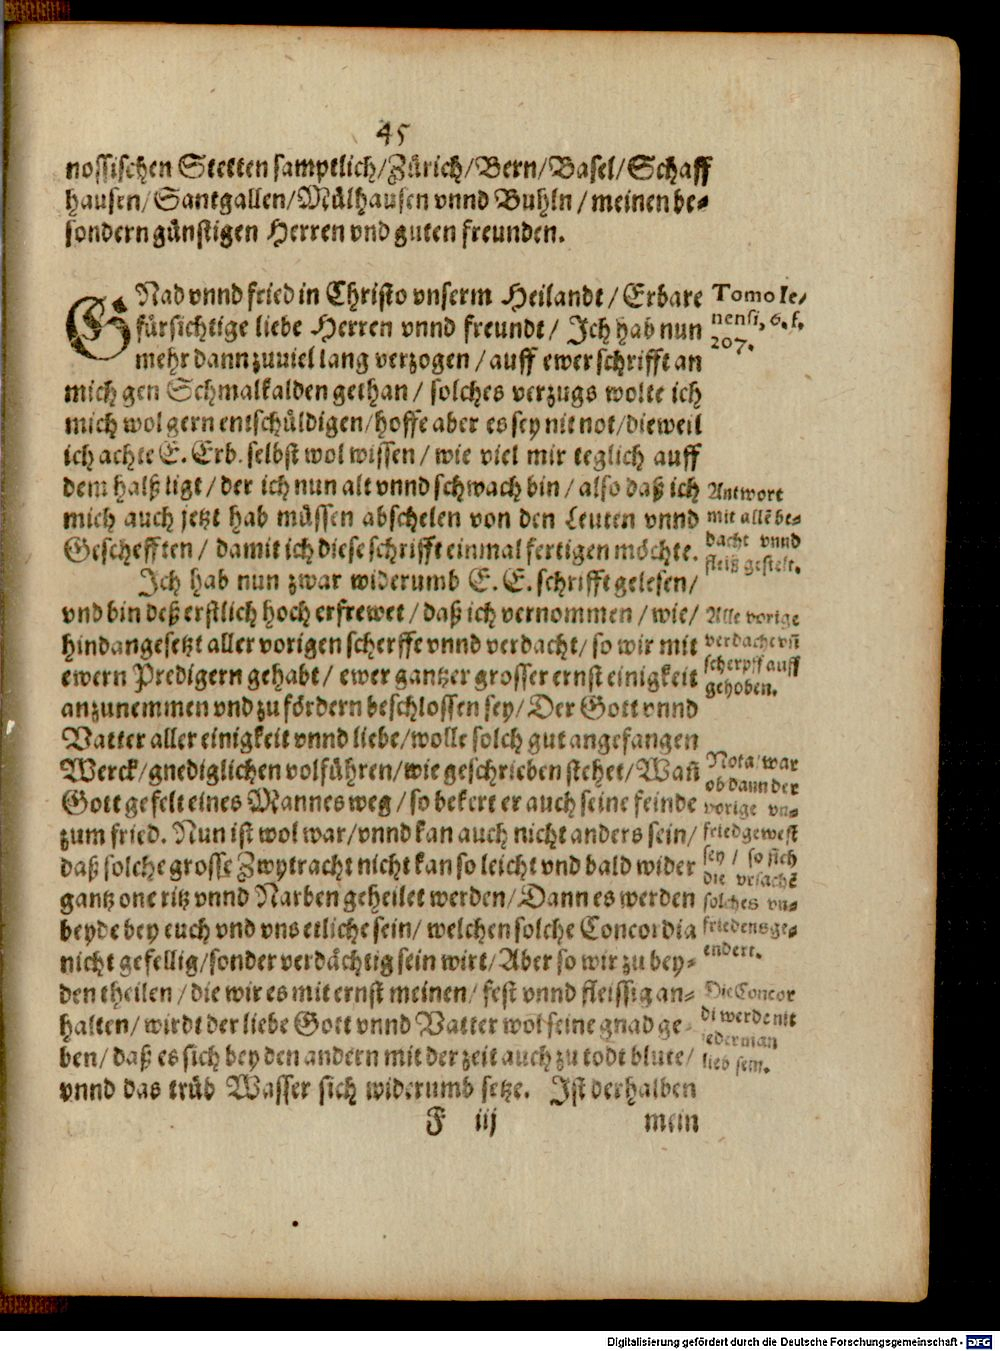 45
nossischen Stetten samptlich/Zürich/Bern/Basel/Schaff
hausen/Santgallen/Mülhausen vnnd Buhln/meinen be-
sondern günstigen Herren vnd guten freunden.
GNad vnnd fried in Christo vnserm Heilandt/Erbare
fürsichtige liebe Herren vnnd freundt/ Ich hab nun
mehr dann zuuiel lang verzogen/auff ewer schrifft an
mich gen Schmalkalden gethan/ solches verzugs wolte ich
mich wol gern entschüldigen/hoffe aber es sey nit not/dieweil
ich achte E. Erb. selbst wol wissen/ wie viel mir teglich auff
dem halß ligt/der ich nun alt vnnd schwach bin/also daß ich
mich auch jetzt hab müssen abschelen von den Leuten vnnd
Geschefften/ damit ich diese schrifft einmal fertigen möchte.
Ich hab nun zwar widerumb E. E. schrifft gelesen/
vnd bin deß erstlich hoch erfrewet/daß ich vernommen/wie/
hindangesetzt aller vorigen scherffe vnnd verdacht/so wir mit
ewern Predigern gehabt/ ewer gantzer grosser ernst einigkeit
anzunemmen vnd zu fördern beschlossen sey/Der Gott vnnd
Vatter aller einigkeit vnnd liebe/wolle solch gut angefangen
Werck/gnediglichen volführen/wie geschrieben stehet/Wañ
Gott gefelt eines Mannes weg/so bekert er auch seine feinde
zum fried. Nun ist wol war/vnnd kan auch nicht anders sein/
daß solche grosse Zwytracht nicht kan so leicht vnd bald wider
gantz one ritz vnnd Narben geheilet werden/Dann es werden
beyde bey euch vnd vns etliche sein/ welchen solche Concordia
nicht gefellig/sonder verdächtig sein wirt/Aber so wir zu bey-
den theilen/die wir es mit ernst meinen/fest vnnd fleissig an-
halten/wirdt der liebe Gott vnnd Vatter wol seine gnad ge-
ben/daß es sich bey den andern mit der zeit auch zu todt blute/
vnnd das trüb Wasser sich widerumb setze. Ist derhalben
F iij mein
Tomo Ie/
nensi, 6. f.
207.
Antwort
mit allē be-
dacht vnnd
fleiß gestelt.
Alle vorige
verdacht vñ
scherpff auff
gehoben.
Nota/war
ob dann der
vorige vn-
fried gewest
sey / so sich
die vrsachē
solches vn-
friedens ge-
endert.
Die Concor
di werde nit
jederman
lieb sein.
Digitalisierung gefördert durch die Deutsche Forschungsgemeinschaft - DFG